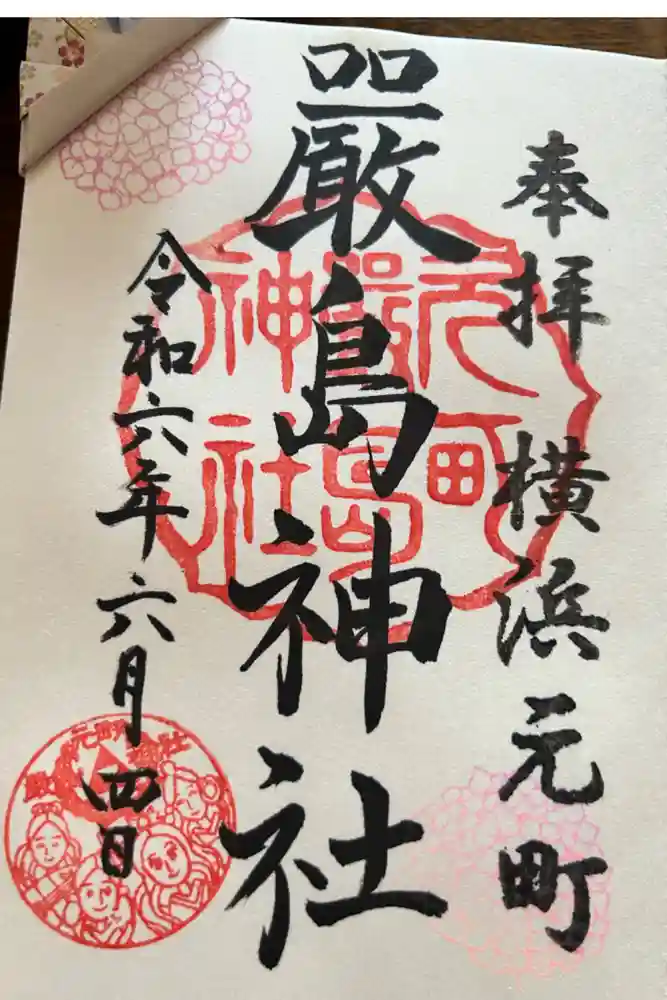 奉拝 横浜元町
嚴島神社
元町嚴島神社
令和六年六月四日